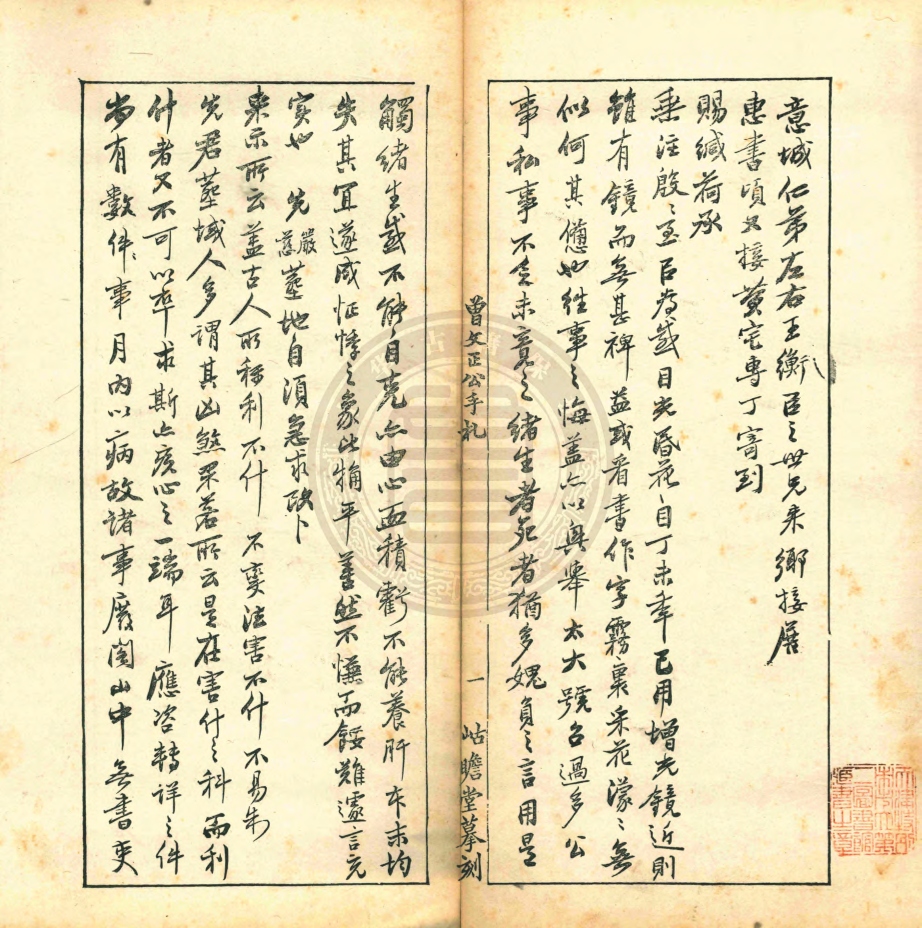 意城仁弟左右王衡臣之世兄来鄉接展
惠書頃又接黃宅專丁寄到
賜緘荷承
垂注殷〻至以為感目光昏花自丁未年已用增光鏡近則
雖有鏡而無甚裨益或看書作字霧裏采花濛〻無
似何其憊也往事之悔蓋亦以興舉太大號召過多公
事私事不乏未竟之緒生者死者猶多媿負之言用是
觸緒生感不能自克亦由心血積虧不能養肝本末均
失其宜遂成怔悸之象比稍平善然不慊而餒難遽言充
實也 先嚴慈墓地自須急求改卜
来示所云蓋古人所稱利不什不變法害不什不易制
先君塋域人多謂其凶煞果若所云是在害什之科而利
什者又不可以卒求斯亦疚心之一端耳應咨轉詳之件
尚有數件事月内以病故諸事廢閣山中無書吏
曾文正公手札
一
岵瞻堂摹刻